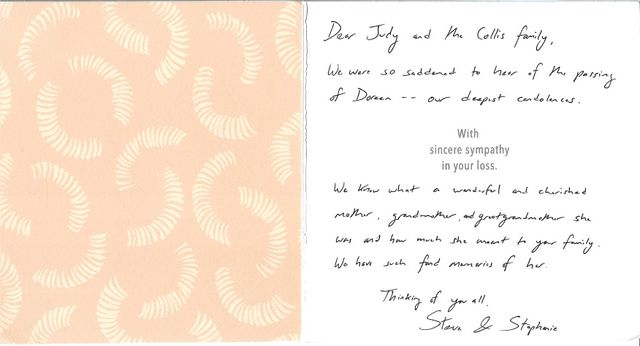 Dear Judy and the Collis family,
We were so saddened to hear of the passing
of Doreen -- our deepest condolences.
With
sincere sympathy
in your loss.
We know what a wonderful and cherished
mother, grandmother, and greatgrandmother she
was and how much she meant to your family.
We have such fond memories of her.
Thinking of you all.
Steve & Stephanie